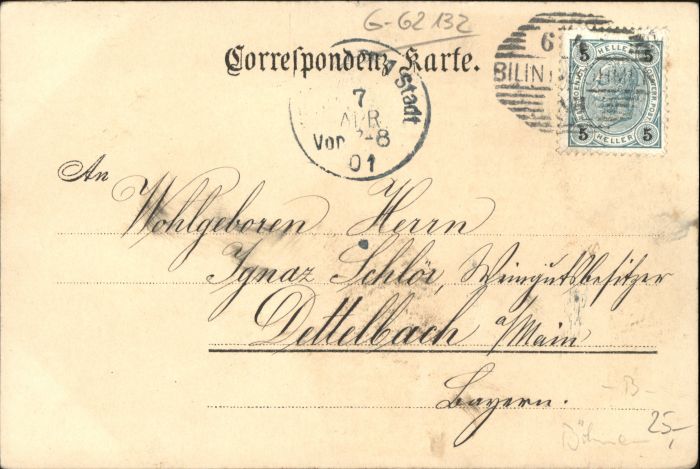 G-62132
Correspondenz-Karte.
6
BILIN
5 HELLER 5
5 HELLER 5
stadt
7
APR
Vor 7-8
01
An
Wohlgeboren Herrn
Ignaz Schlör, Weingutsbesitzer
Dettelbach a/Main
Bayern.
- B -
25,-
Böhmen